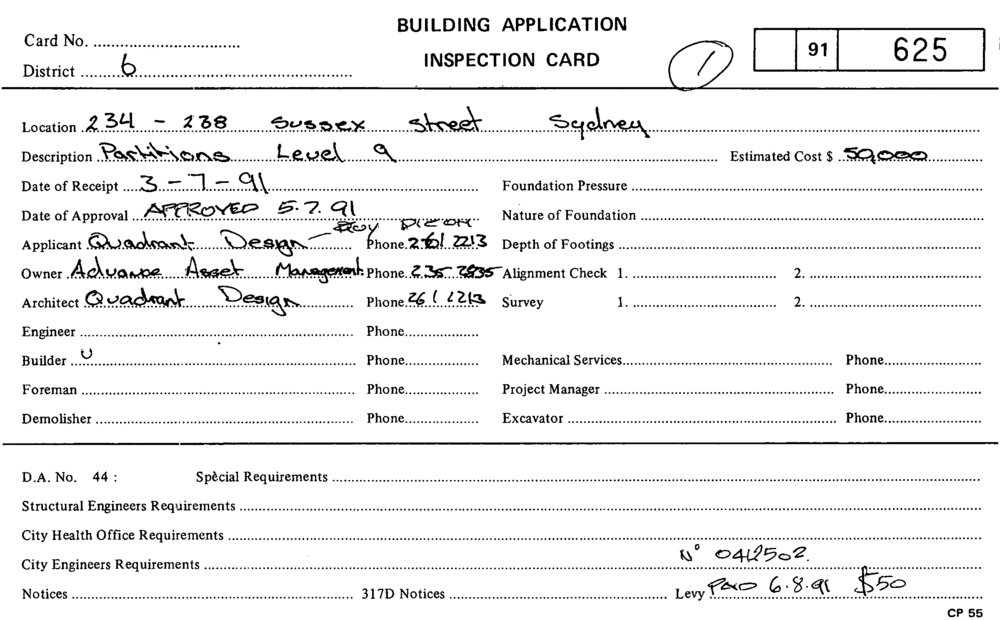 BUILDING APPLICATION
INSPECTION CARD
Card No.
District 6
1
91 625
Location 234 - 238 Sussex Street Sydney
Description Partitions Level 9
Estimated Cost $ 50,000
Date of Receipt 3-7-91
Foundation Pressure
Date of Approval APPROVED 5.7.91
Nature of Foundation
Applicant Quadrant Design - DIZON Phone 261 2213
Depth of Footings
Owner Advance Asset Management Phone 235 2935
Alignment Check 1. 2.
Architect Quadrant Design Phone 261 2213
Survey 1. 2.
Engineer Phone
Builder U Phone
Mechanical Services Phone
Foreman Phone
Project Manager Phone
Demolisher Phone
Excavator Phone
D.A. No. 44 : Special Requirements
Structural Engineers Requirements
City Health Office Requirements
City Engineers Requirements
N° 0412502.
Notices 317D Notices Levy PAID 6.8.91 $50
CP 55